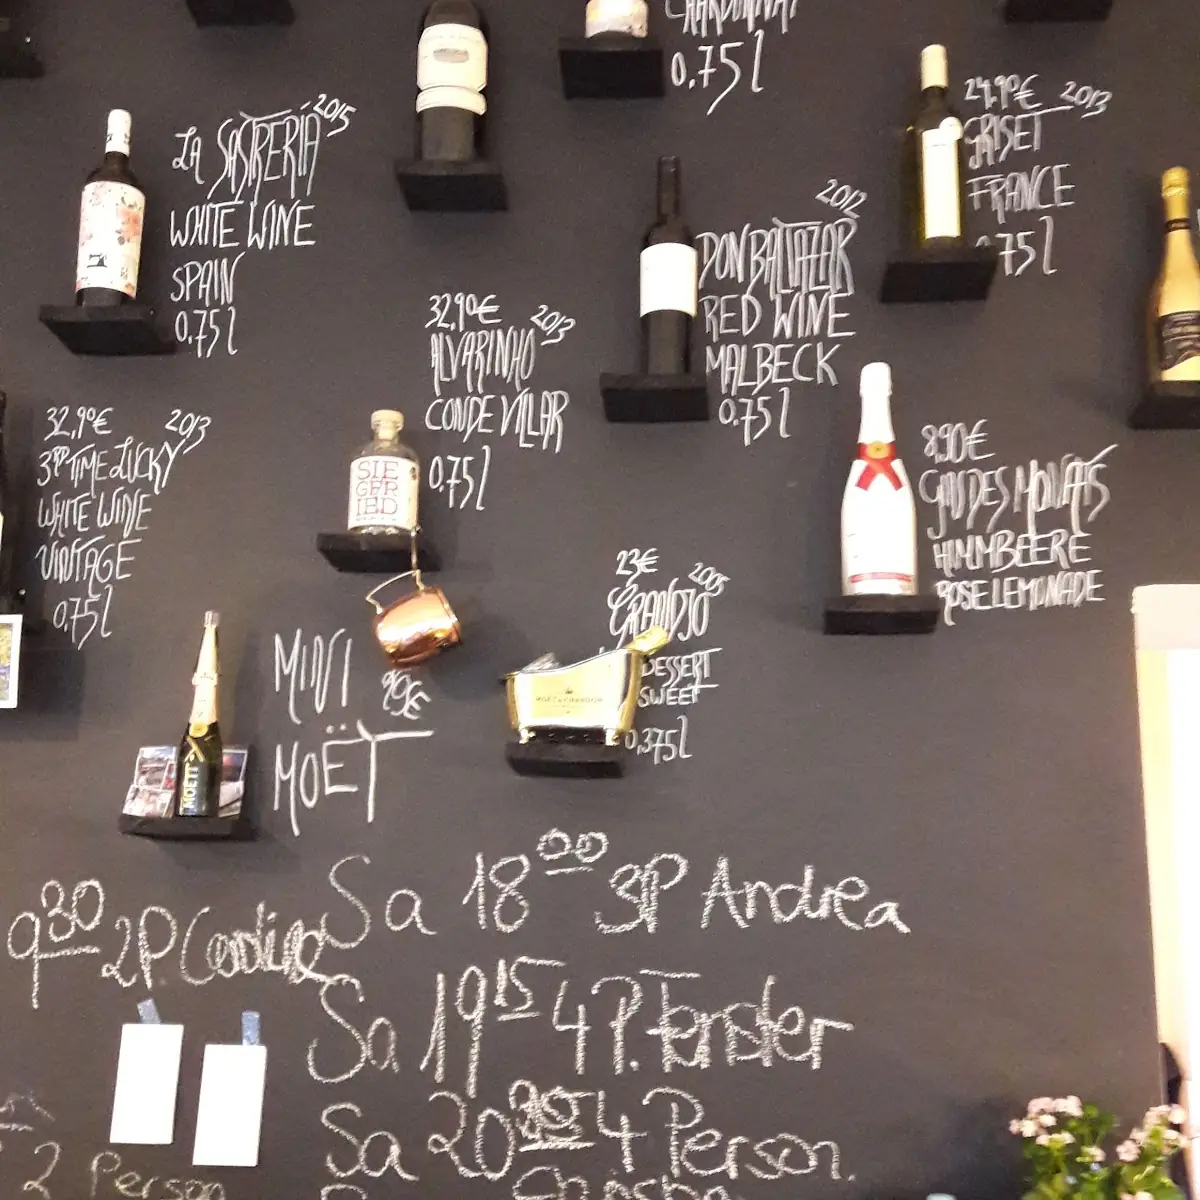 CHARDONNAY
0.75l
LA SASTRERIA 2015
WHITE WINE
SPAIN
0.75l
24,90€ 2013
GRISET
FRANCE
0.75l
2012
DON BALTAZAR
RED WINE
MALBECK
0.75l
32,90€ 2013
ALVARINHO
CONDE VILLAR
0.75l
32,90€ 2013
3RD TIME LUCKY
WHITE WINE
VINTAGE
0.75l
SIE
GFR
IED
8,90€
GIN DES MONATS
HIMMBEERE
ROSE LEMONADE
23€ 2005
GRANDJO
DESSERT
SWEET
0,375l
MOËT & CHANDON
MINI
MOËT
MOËT
Sa 18 00 3P Andrea
9 30 2P. Caroline
Sa 19 15 4 P.
Sa 20 4 Person
2 Person